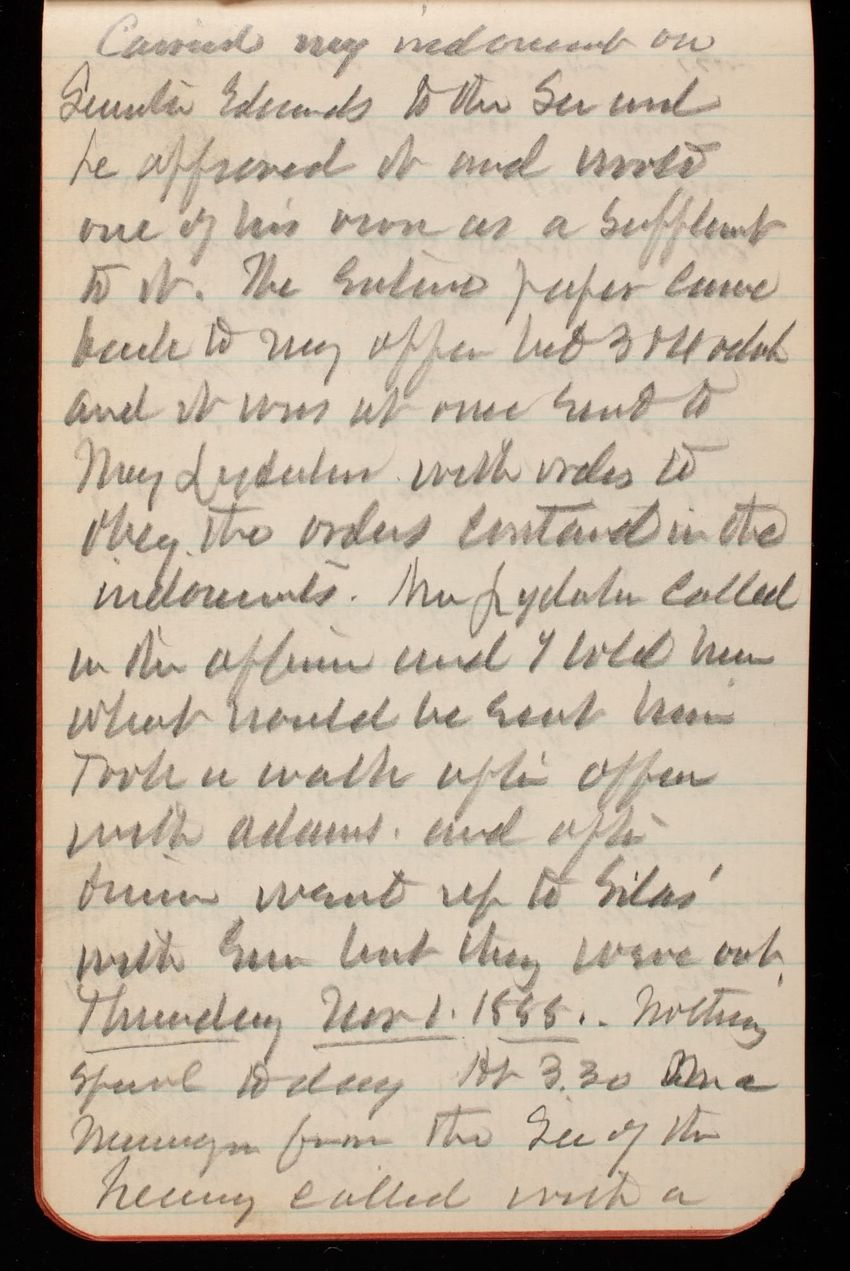 Carried my indorsement on
Senator Edmunds to the Sec and
he approved it and wrote
one of his own as a supplement
to it. The entire paper came
back to my office bet 3 & 4 oclock
and it was at once sent to
Maj Lydecker with orders to
obey the orders contained in the
indorsements. Lydecker called
in the afternoon and I told him
what would be sent him
Took a walk after office
with Adams. and after
dinner went up to Silas'
with but they were out.
Thursday Nov 1. 1888.. Nothing
special today At 3.30 a
messenger from the Sec of the
called with a